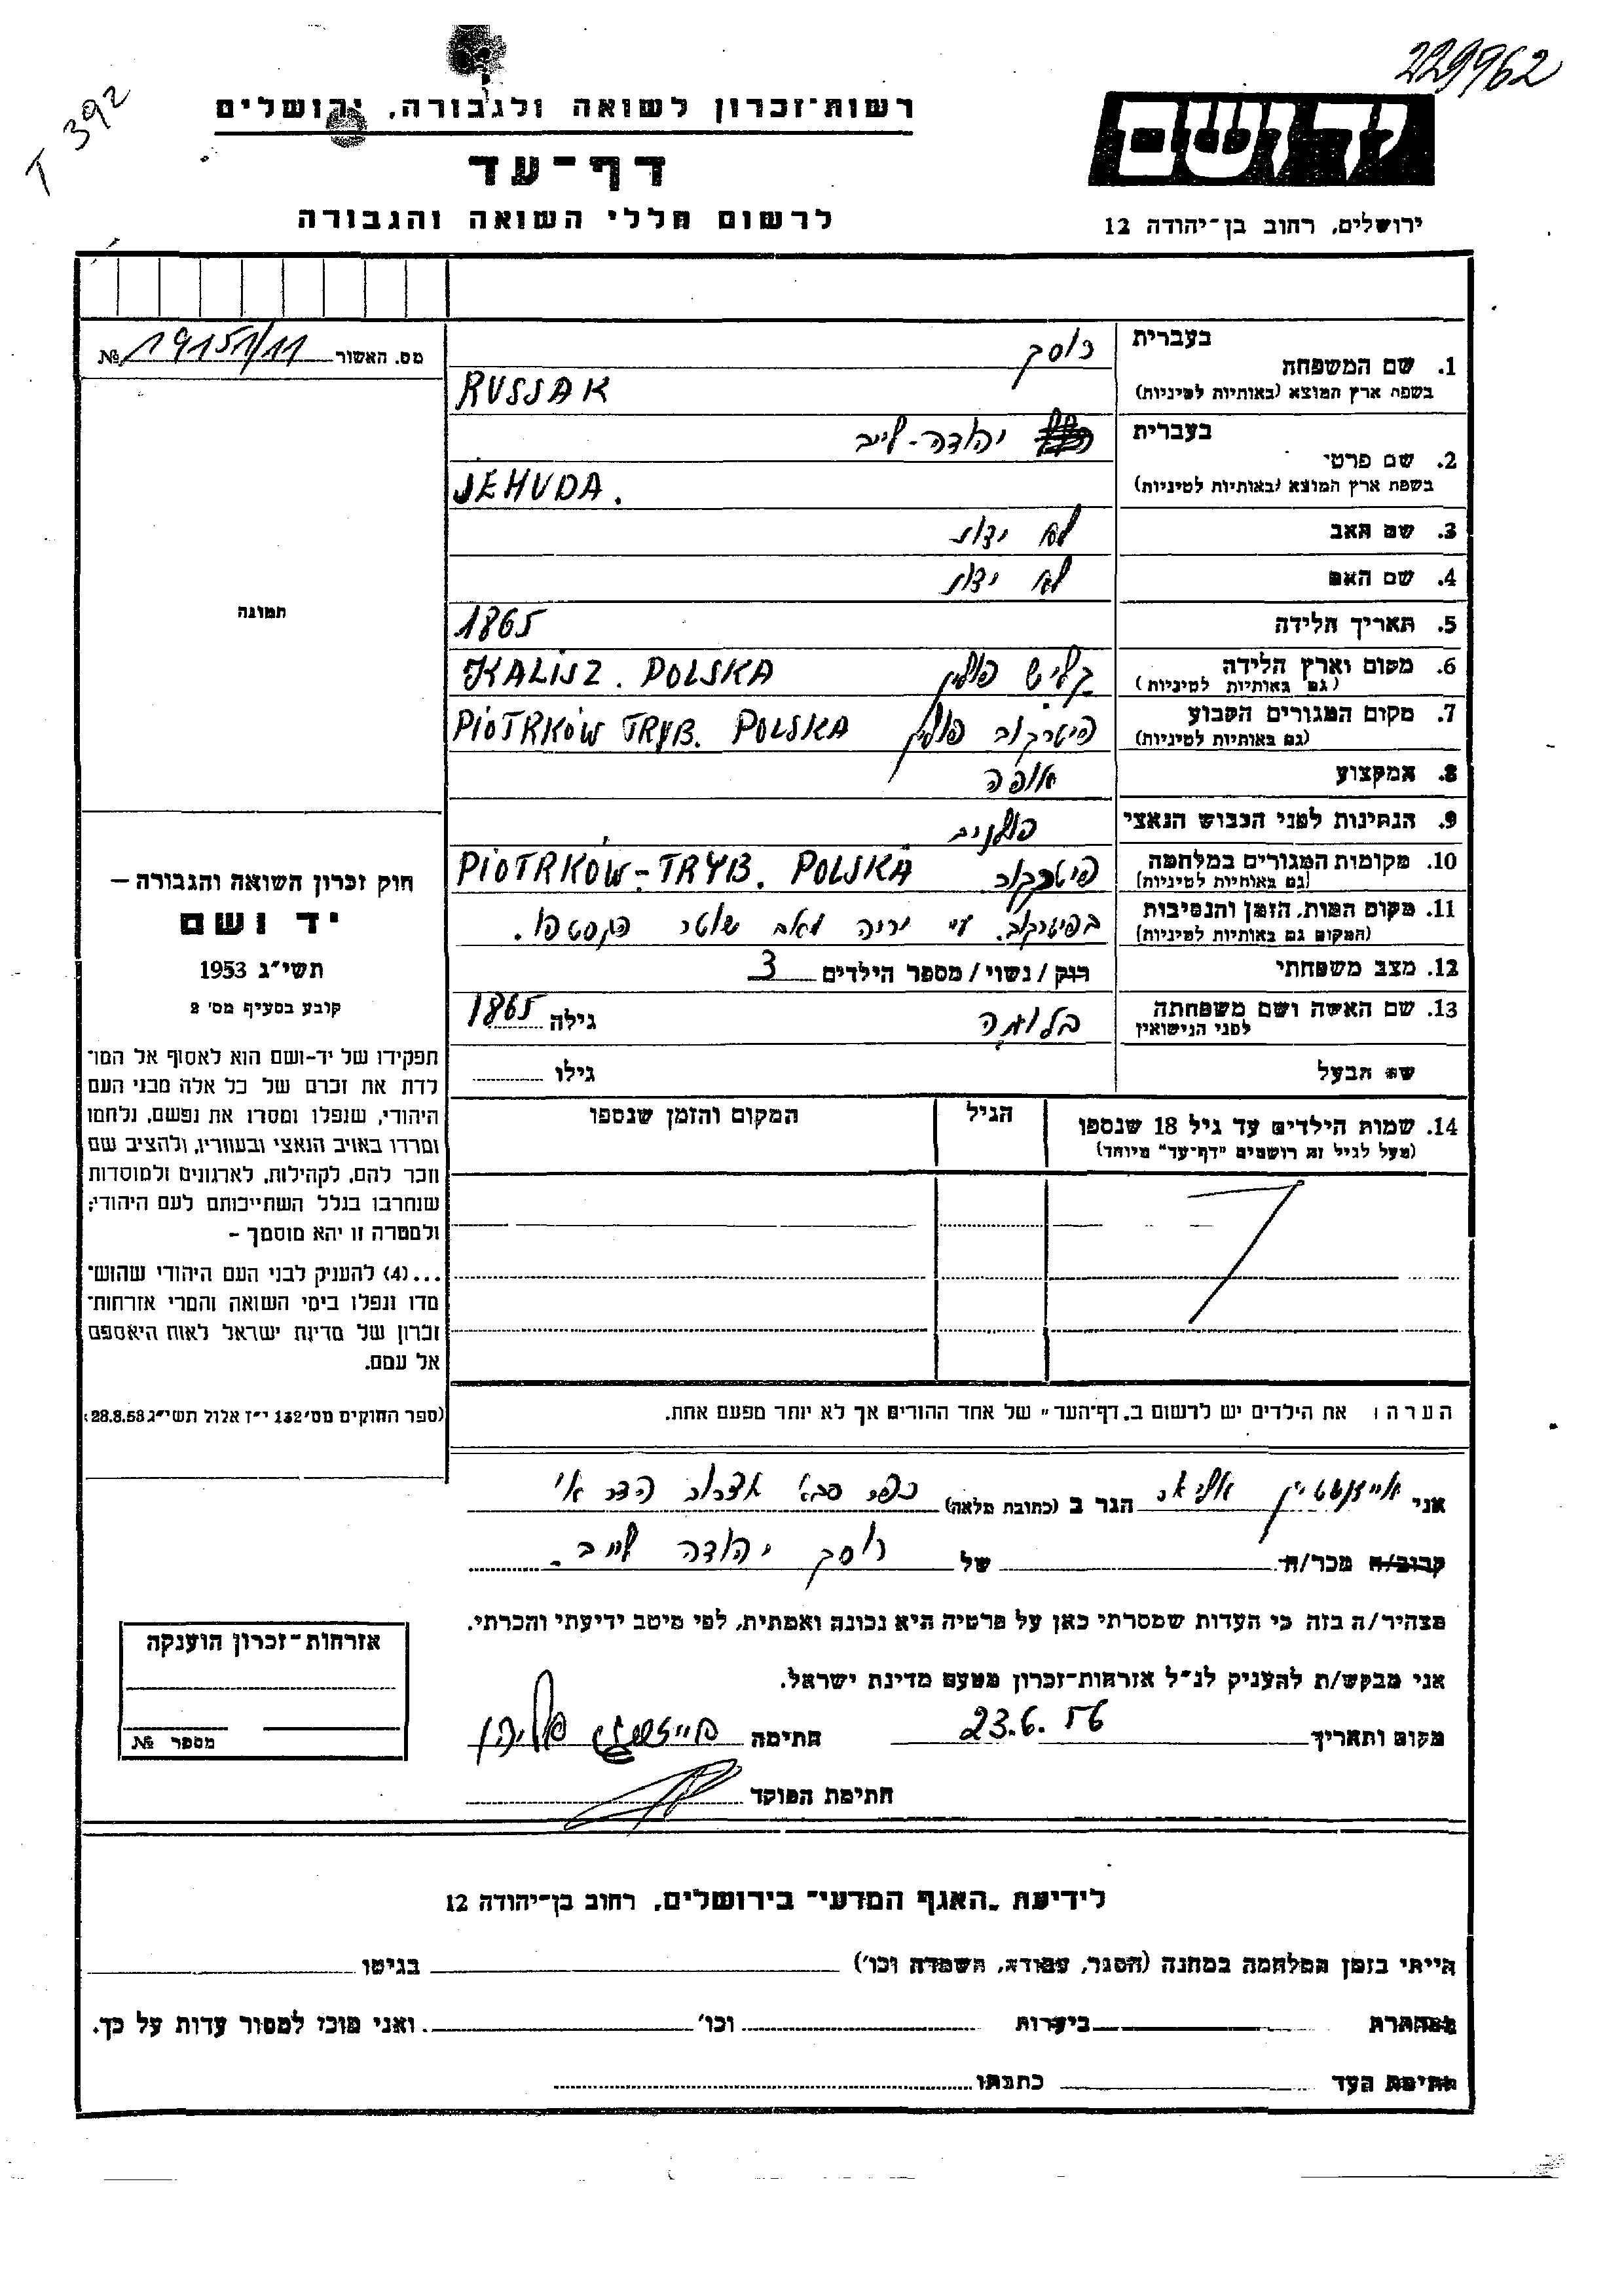 229962
T 392
רשות־זכרון לשואה ולגבורה, ירושלים
דף־עד
לרשום חללי השואה והגבורה
יד ושם
ירושלים, רחוב בן־יהודה 12
מס. האשור 19151/11 №
בעברית רוסק
1. שם המשפחה
בשפת ארץ המוצא (באותיות לטיניות) RUSSAK
בעברית יהודה־לייב
2. שם פרטי
בשפת ארץ המוצא (באותיות לטיניות) JEHUDA.
3. שם האב לא ידוע
4. שם האם לא ידוע
5. תאריך הלידה 1865
6. מקום וארץ הלידה קליש פולין KALISZ. POLSKA
(גם באותיות לטיניות)
7. מקום המגורים הקבוע פיטרקוב פולין PIOTRKÓW TRYB. POLSKA
(גם באותיות לטיניות)
8. המקצוע אופה
9. הנתינות לפני הכבוש הנאצי
10. מקומות המגורים במלחמה פיטרקוב PIOTRKÓW-TRYB. POLSKA
(גם באותיות לטיניות)
11. מקום המות, הזמן והנסיבות בפיטרקוב. ע״י יריה
(המקום גם באותיות לטיניות)
12. מצב משפחתי רווק / נשוי / מספר הילדים 3
13. שם האשה ושם משפחתה גילה 1865
לפני הנישואין
שם הבעל גילו
14. שמות הילדים עד גיל 18 שנספו הגיל המקום והזמן שנספו
(מעל לגיל זה רושמים "דף־עד" מיוחד)
הערה: את הילדים יש לרשום ב„דף־העד" של אחד ההורים אך לא יותר מפעם אחת.
תמונה
חוק זכרון השואה והגבורה –
יד ושם
תשי״ג 1953
קובע בסעיף מס' 2
תפקידו של יד-ושם הוא לאסוף אל המו־
לדת את זכרם של כל אלה מבני העם
היהודי, שנפלו ומסרו את נפשם, נלחמו
ומרדו באויב הנאצי ובעוזריו, ולהציב שם
וזכר להם, לקהילות, לארגונים ולמוסדות
שנחרבו בגלל השתייכותם לעם היהודי;
ולמטרה זו יהא מוסמך –
...(4) להעניק לבני העם היהודי שהוש־
מדו ונפלו בימי השואה והמרי אזרחות־
זכרון של מדינת ישראל לאות היאספם
אל עמם.
(ספר החוקים מס' 132 י״ז אלול תשי״ג 28.8.53)
אני הגר ב (כתובת מלאה) כפר סבא
קרוב/ה מכר/ה של רוסק יהודה לייב.
מצהיר/ה בזה כי העדות שמסרתי כאן על פרטיה היא נכונה ואמתית, לפי מיטב ידיעתי והכרתי.
אני מבקש/ת להעניק לנ״ל אזרחות־זכרון מטעם מדינת ישראל.
מקום ותאריך 23.6.56 חתימה
חתימת הפוקד
אזרחות־זכרון הוענקה
מספר №
לידיעת „האגף המדעי" בירושלים, רחוב בן־יהודה 12
הייתי בזמן המלחמה במחנה (הסגר, עבודה, השמדה וכו') בגיטו
במחתרת ביערות וכו' ואני מוכן למסור עדות על כך.
חתימת העד כתבתו